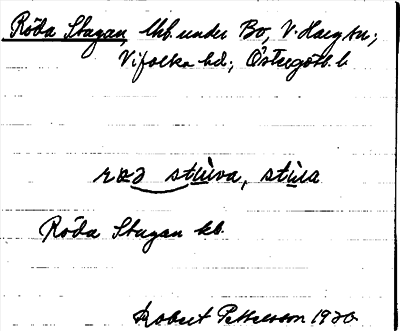 Röda Stugan, lhb. under Bo, V. Harg sn;
Vifolka hd; Östergötl. l.
stùva, stùa
Röda Stugan kb.
Robert Pettersson 1920